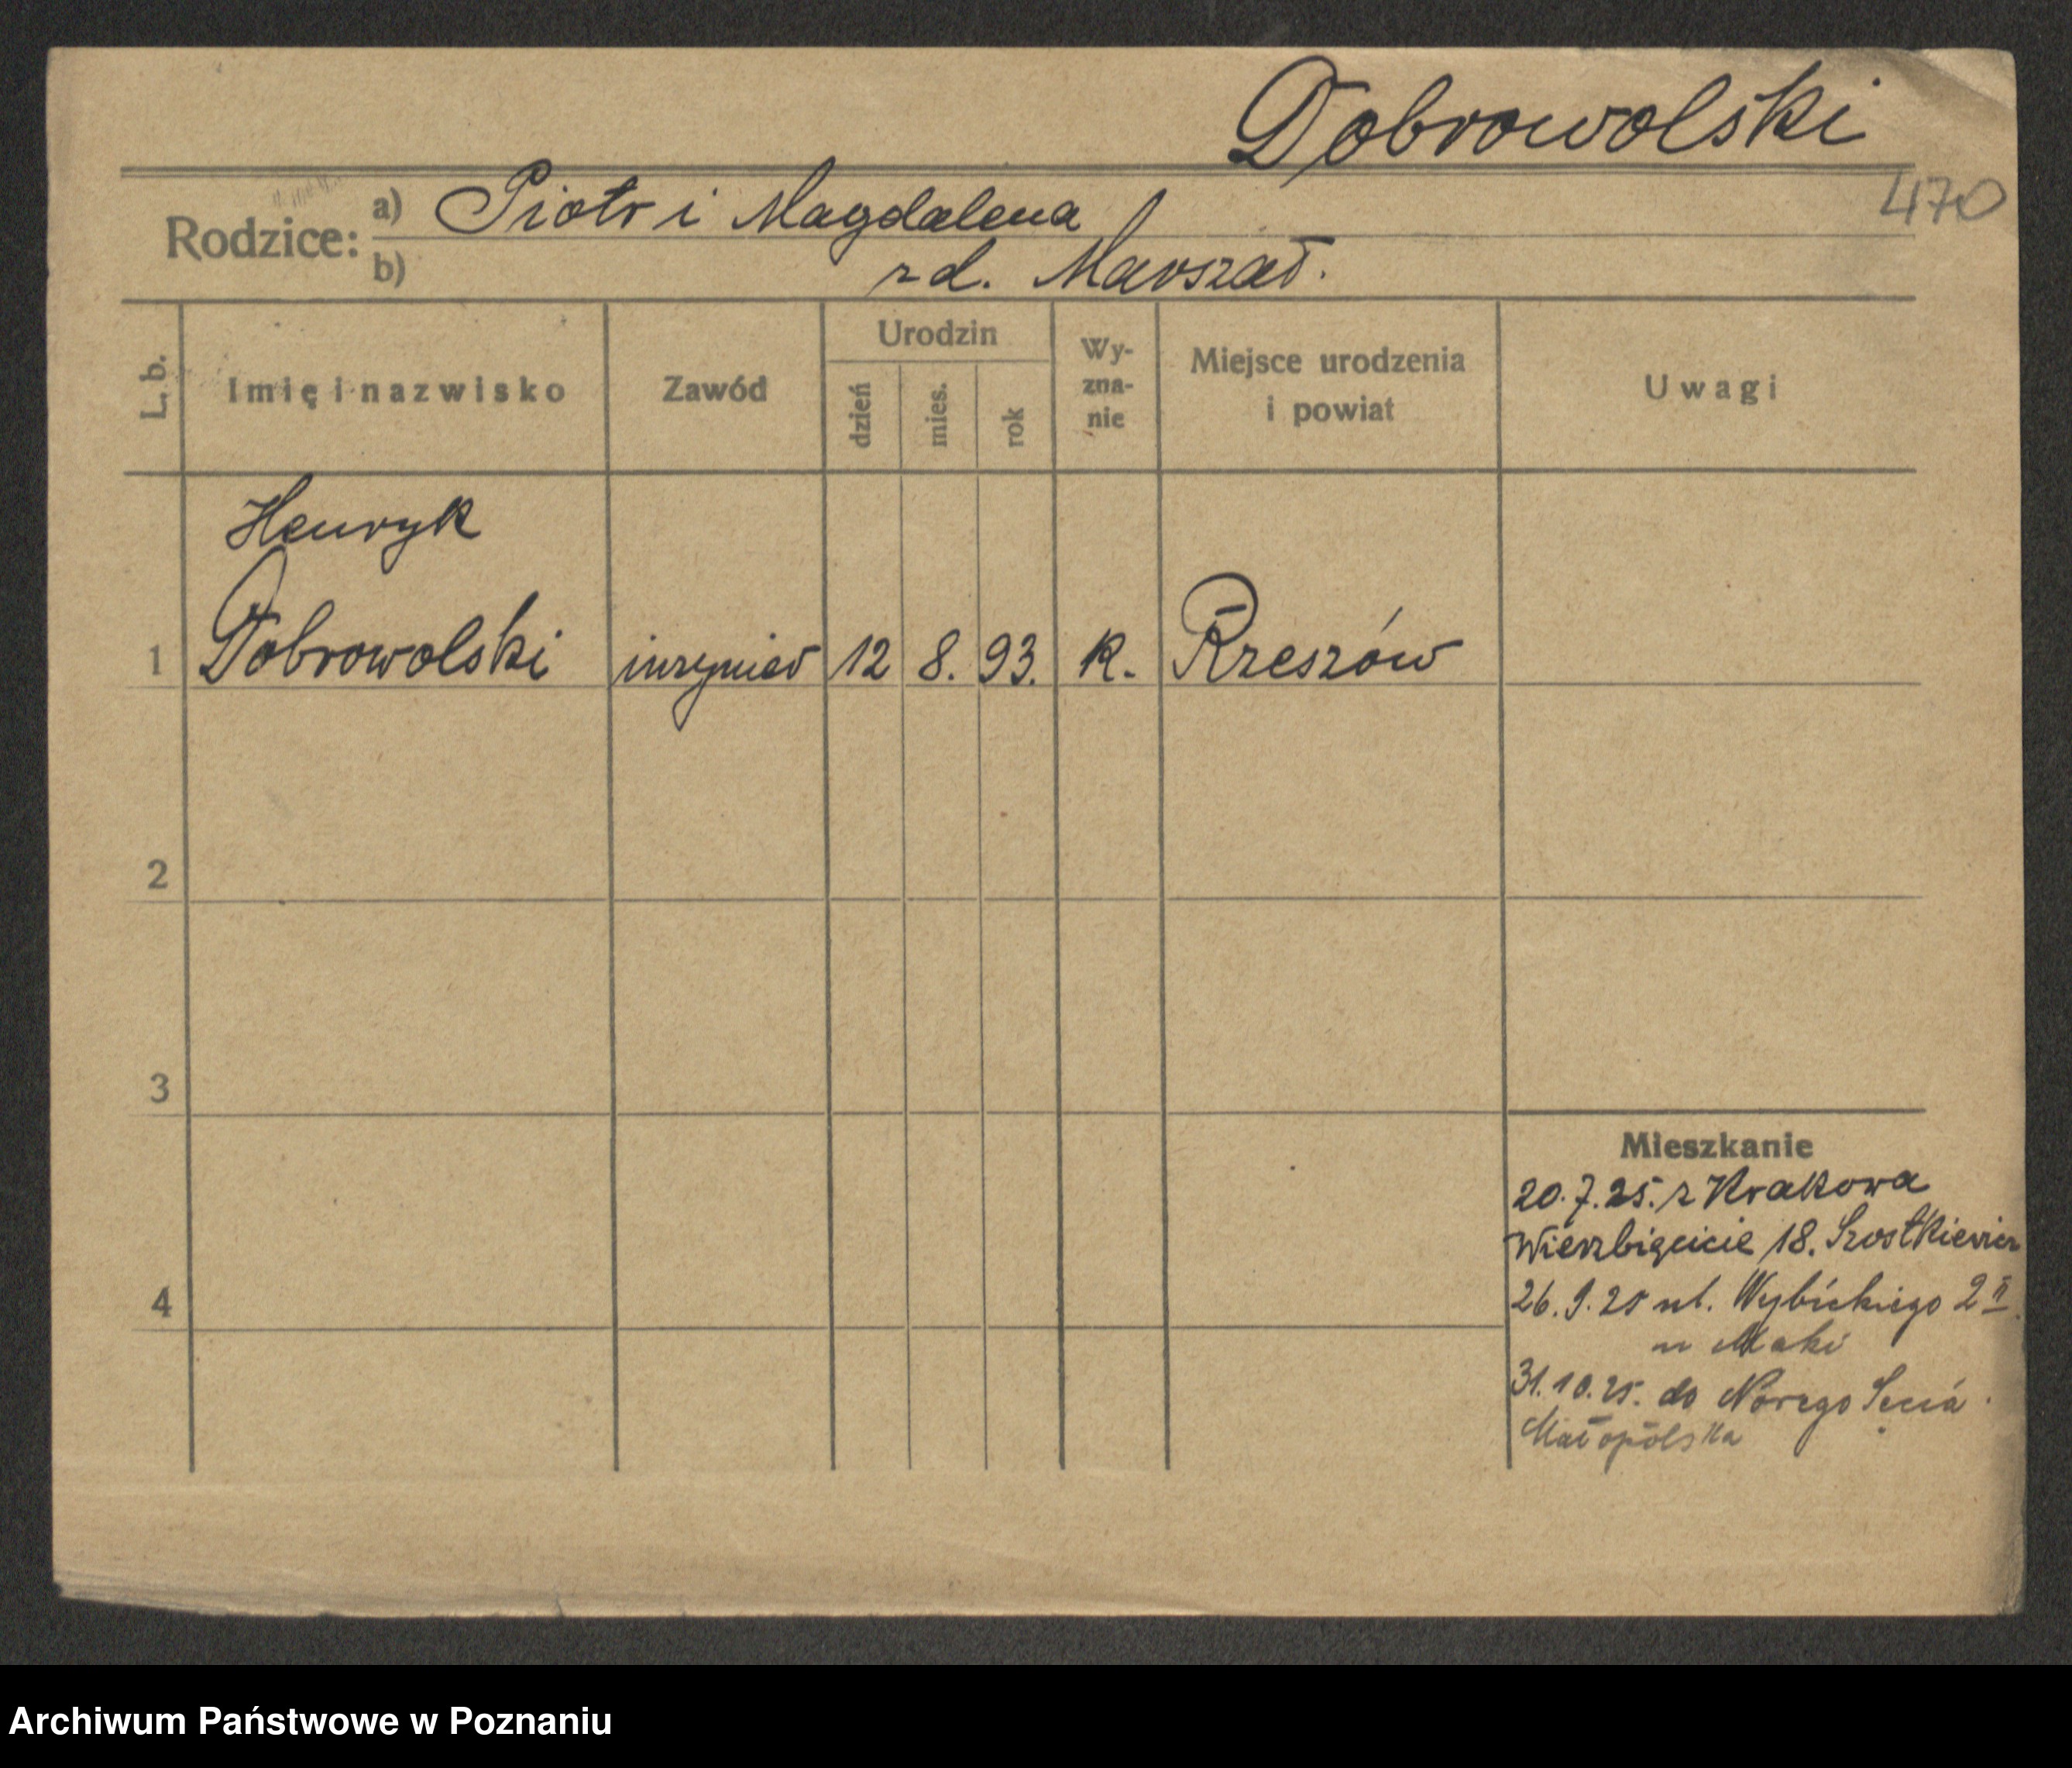 Dobrowolski
470
Rodzice: a) Piotr i Magdalena
b) zd. Marszał.
L. b.
Imię i nazwisko
Zawód
Urodzin
dzień
mies.
rok
Wy-
zna-
nie
Miejsce urodzenia
i powiat
Uwagi
Henryk
1 Dobrowolski inżynier 12 8. 93. k. Rzeszów
2
3
Mieszkanie
20.7.25. z Krakowa
Wierzbięcicie 18. Szostkiewicz
4
26.9.25 ul. Wybickiego 2 II
u Maki
31.10.25. do Nowego Sącza
Małopolska
Archiwum Państwowe w Poznaniu